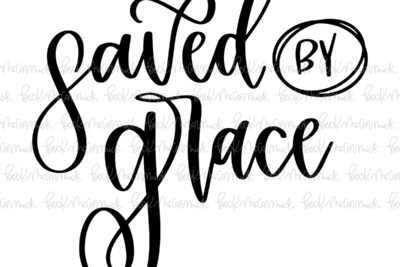 saved BY
grace